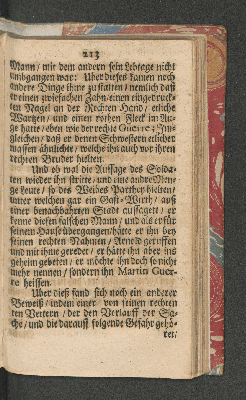 213
Mann / mit dem andern sein Lebtage nicht
umbgangen war: Uber dieses kamen noch
andere Dinge ihme zu statten / nemlich daß
er einen zwiefachen Zahn / einen eingedruck-
ten Nagel an der Rechten Hand / etliche
Wartzen / und einen rothen Fleck im Au-
ge hatte / eben wie der rechte Guerre; Im-
gleichen / daß er denen Schwestern etlicher
massen ähnliche / welche ihn auch vor ihren
rechten Bruder hielten.
Und ob wal die Aussage des Solda-
ten wieder ihn stritte / und eine andre Men-
ge Leute / so des Weibes Parthey hielten /
unter welchen gar ein Gast-Wirth / aus
einer benachbahrten Stadt aussagete / er
kenne diesen falschen Mann / und als er für
seinem Hause übergangen / hätte er ihn bey
seinen rechten Nahmen / Arnold geruffen
und mit ihme geredet / er hätte ihn aber ins
geheim gebeten / er möchte ihn doch so nicht
mehr nennen / sondern ihn Martin Guer-
re heissen.
Uber dieß fand sich noch ein anderer
Beweiß / indem einer von seinen rechten
ten Vettern / der den Verlauff der Sa-
che / und die darauff folgende Gefahr gehö-
ret /